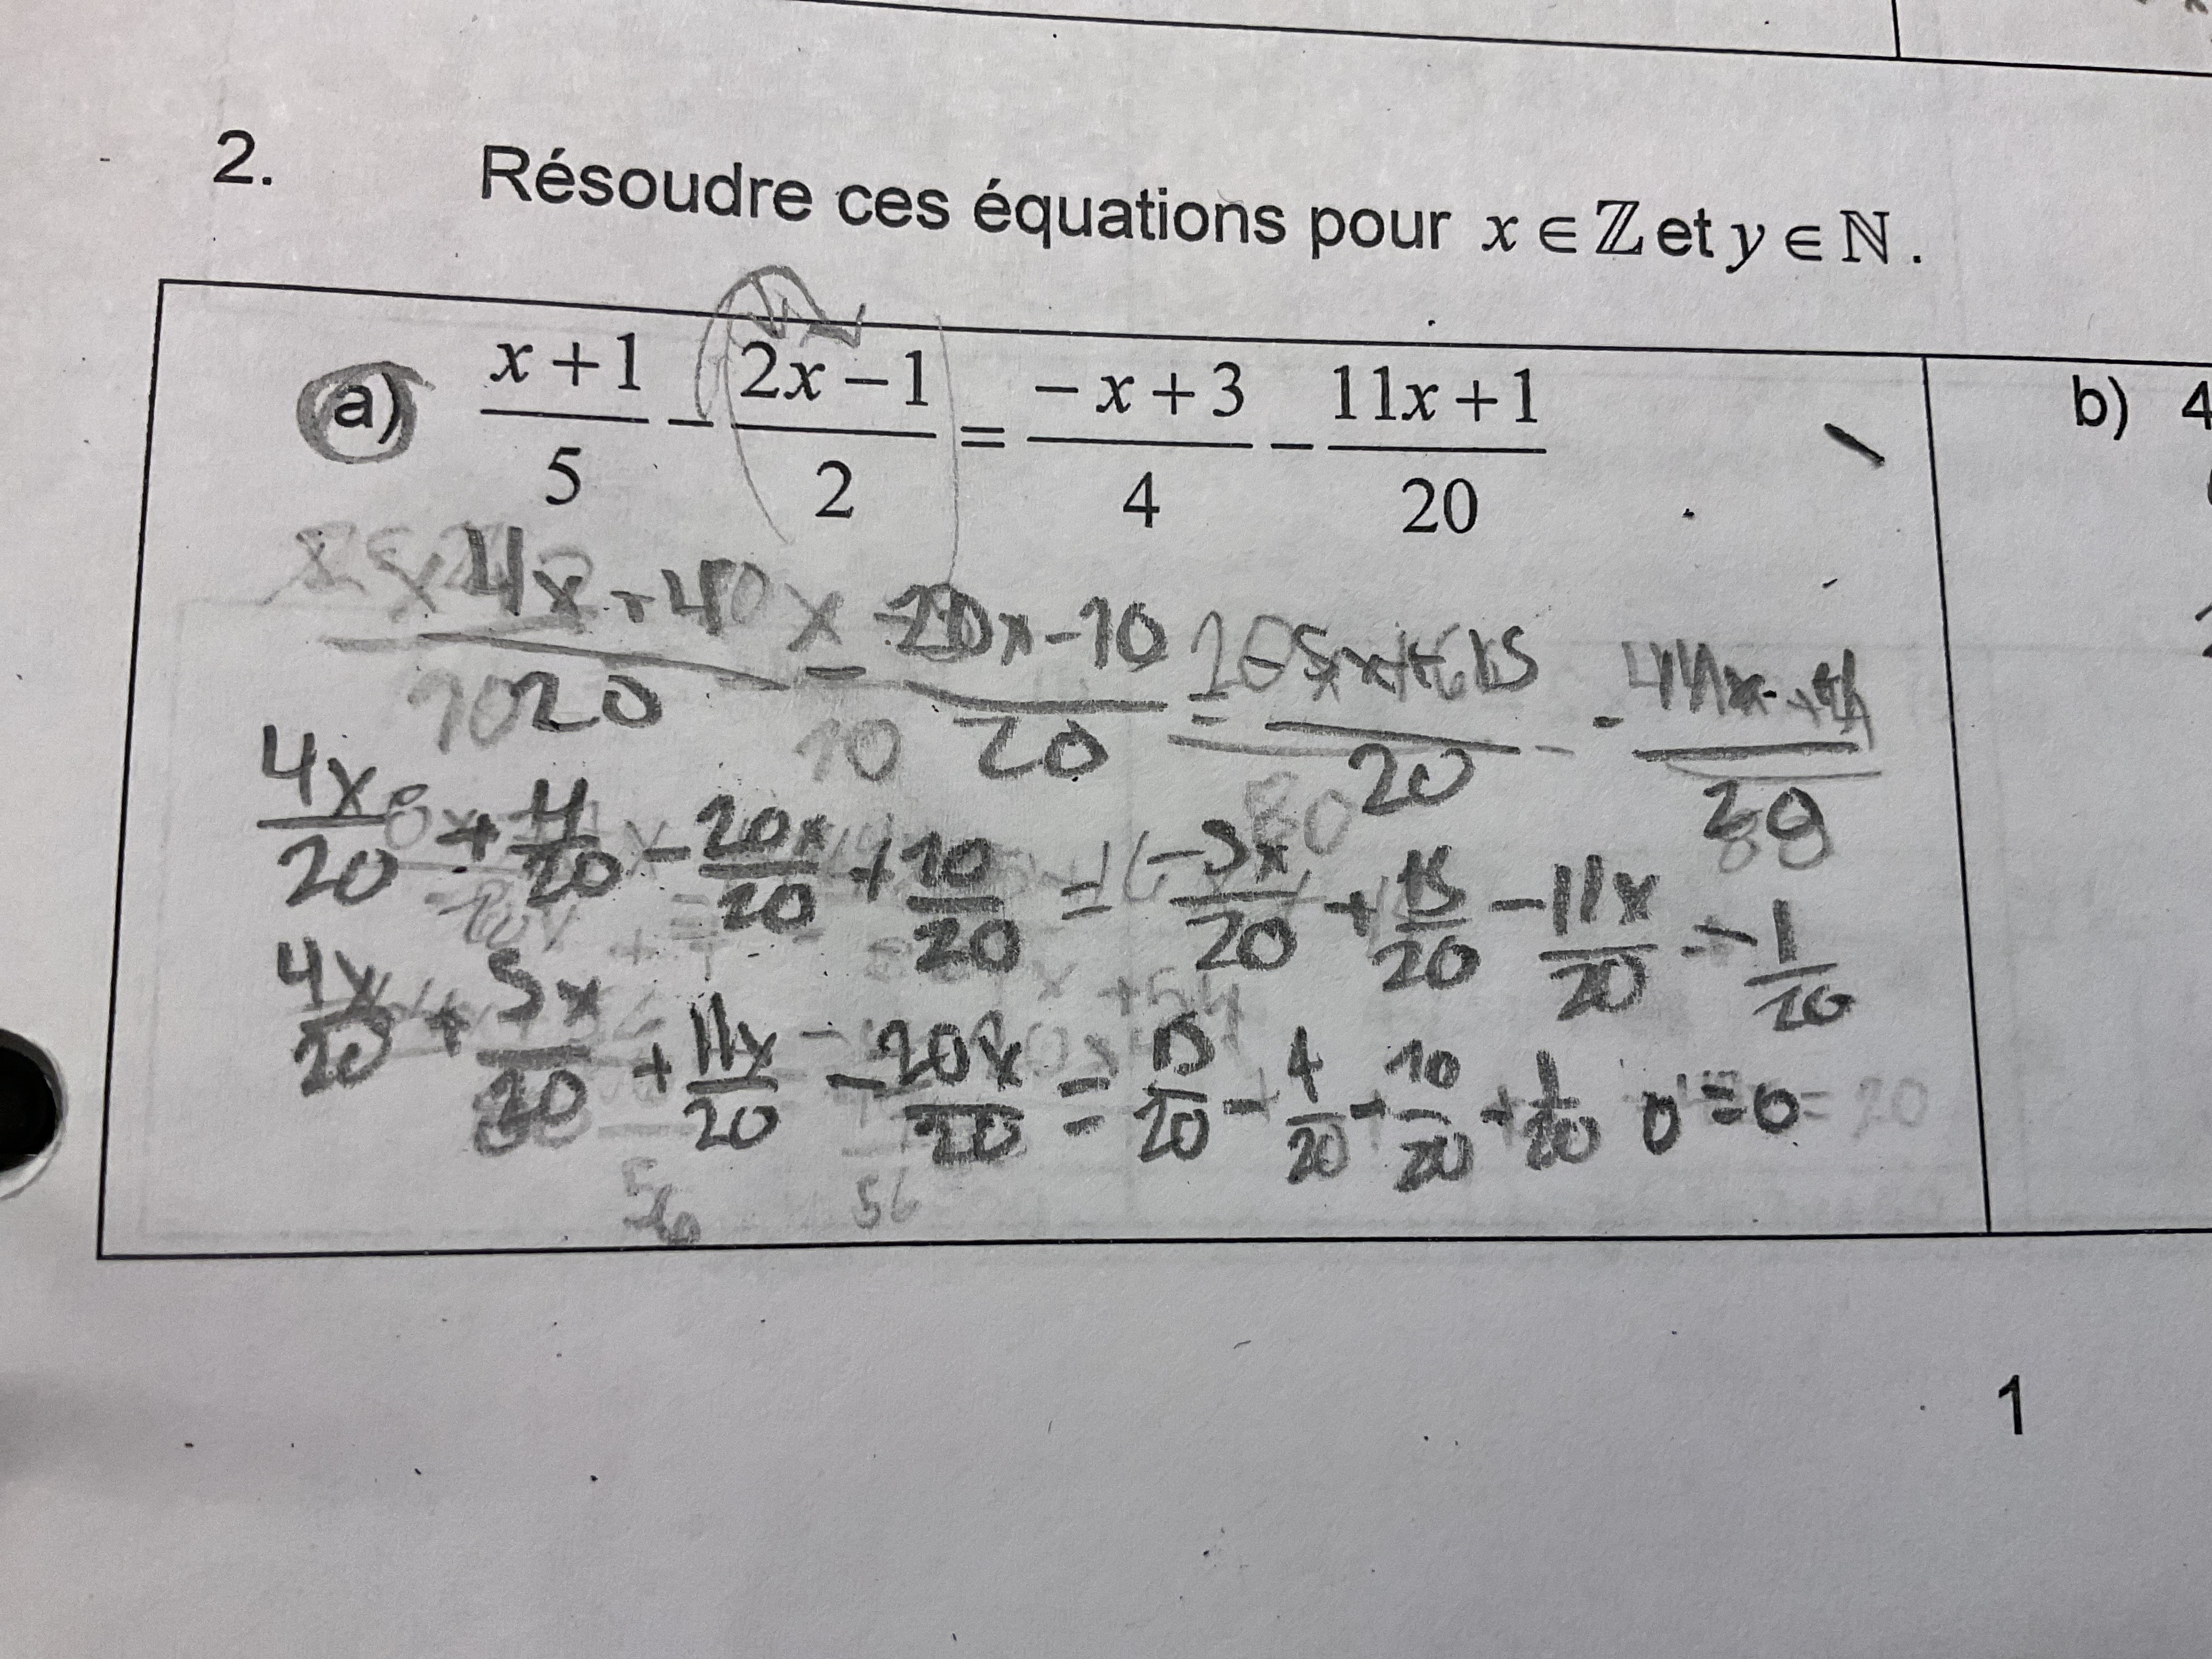 2. Résoudre ces équations pour x ∈ ℤ et y ∈ ℕ.
a) (x+1)/5 - (2x-1)/2 = (-x+3)/4 - (11x+1)/20
b) 4
(4x+4)/20 - (20x-10)/20 = (-5x+15)/20 -
4x/20 + 4/20 - 20x/20 + 10/20 = -5x/20 + 15/20 - 11x/20 - 1/20
4x/20 + 5x/20 + 11x/20 - 20x/20 = 15/20 - 4/20 - 10/20 - 1/20 0=0
56
1